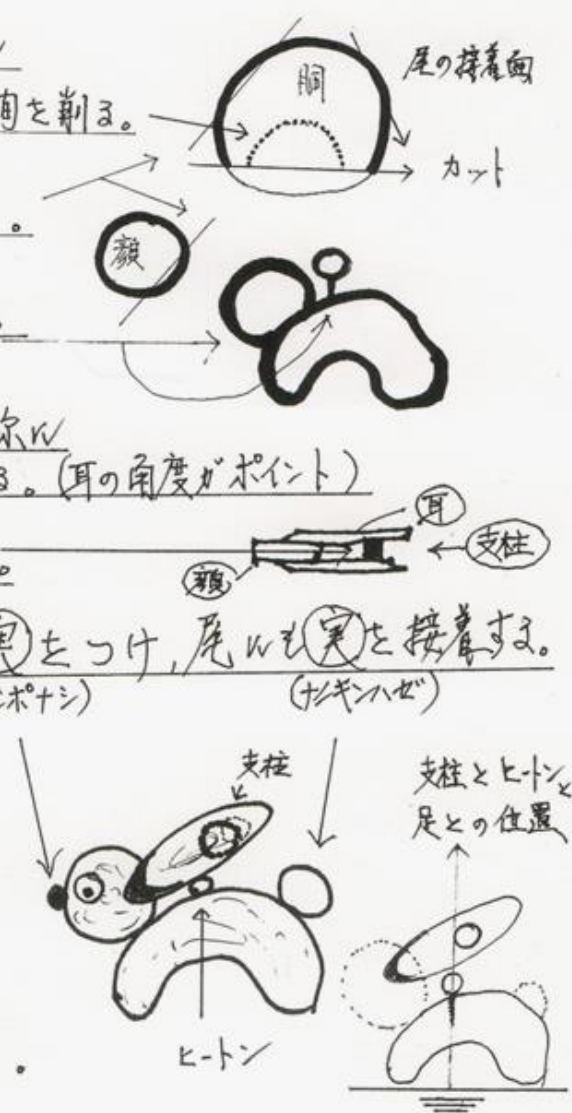 尾の接着面
胴
を削る。
カット
。
顔
る。(耳の角度がポイント)
耳
支柱
。
顔
実をつけ、尾にも実を接着する。
ポナシ)
(ナンキンハゼ)
支柱
支柱とヒートンと
足との位置
ヒートン
。